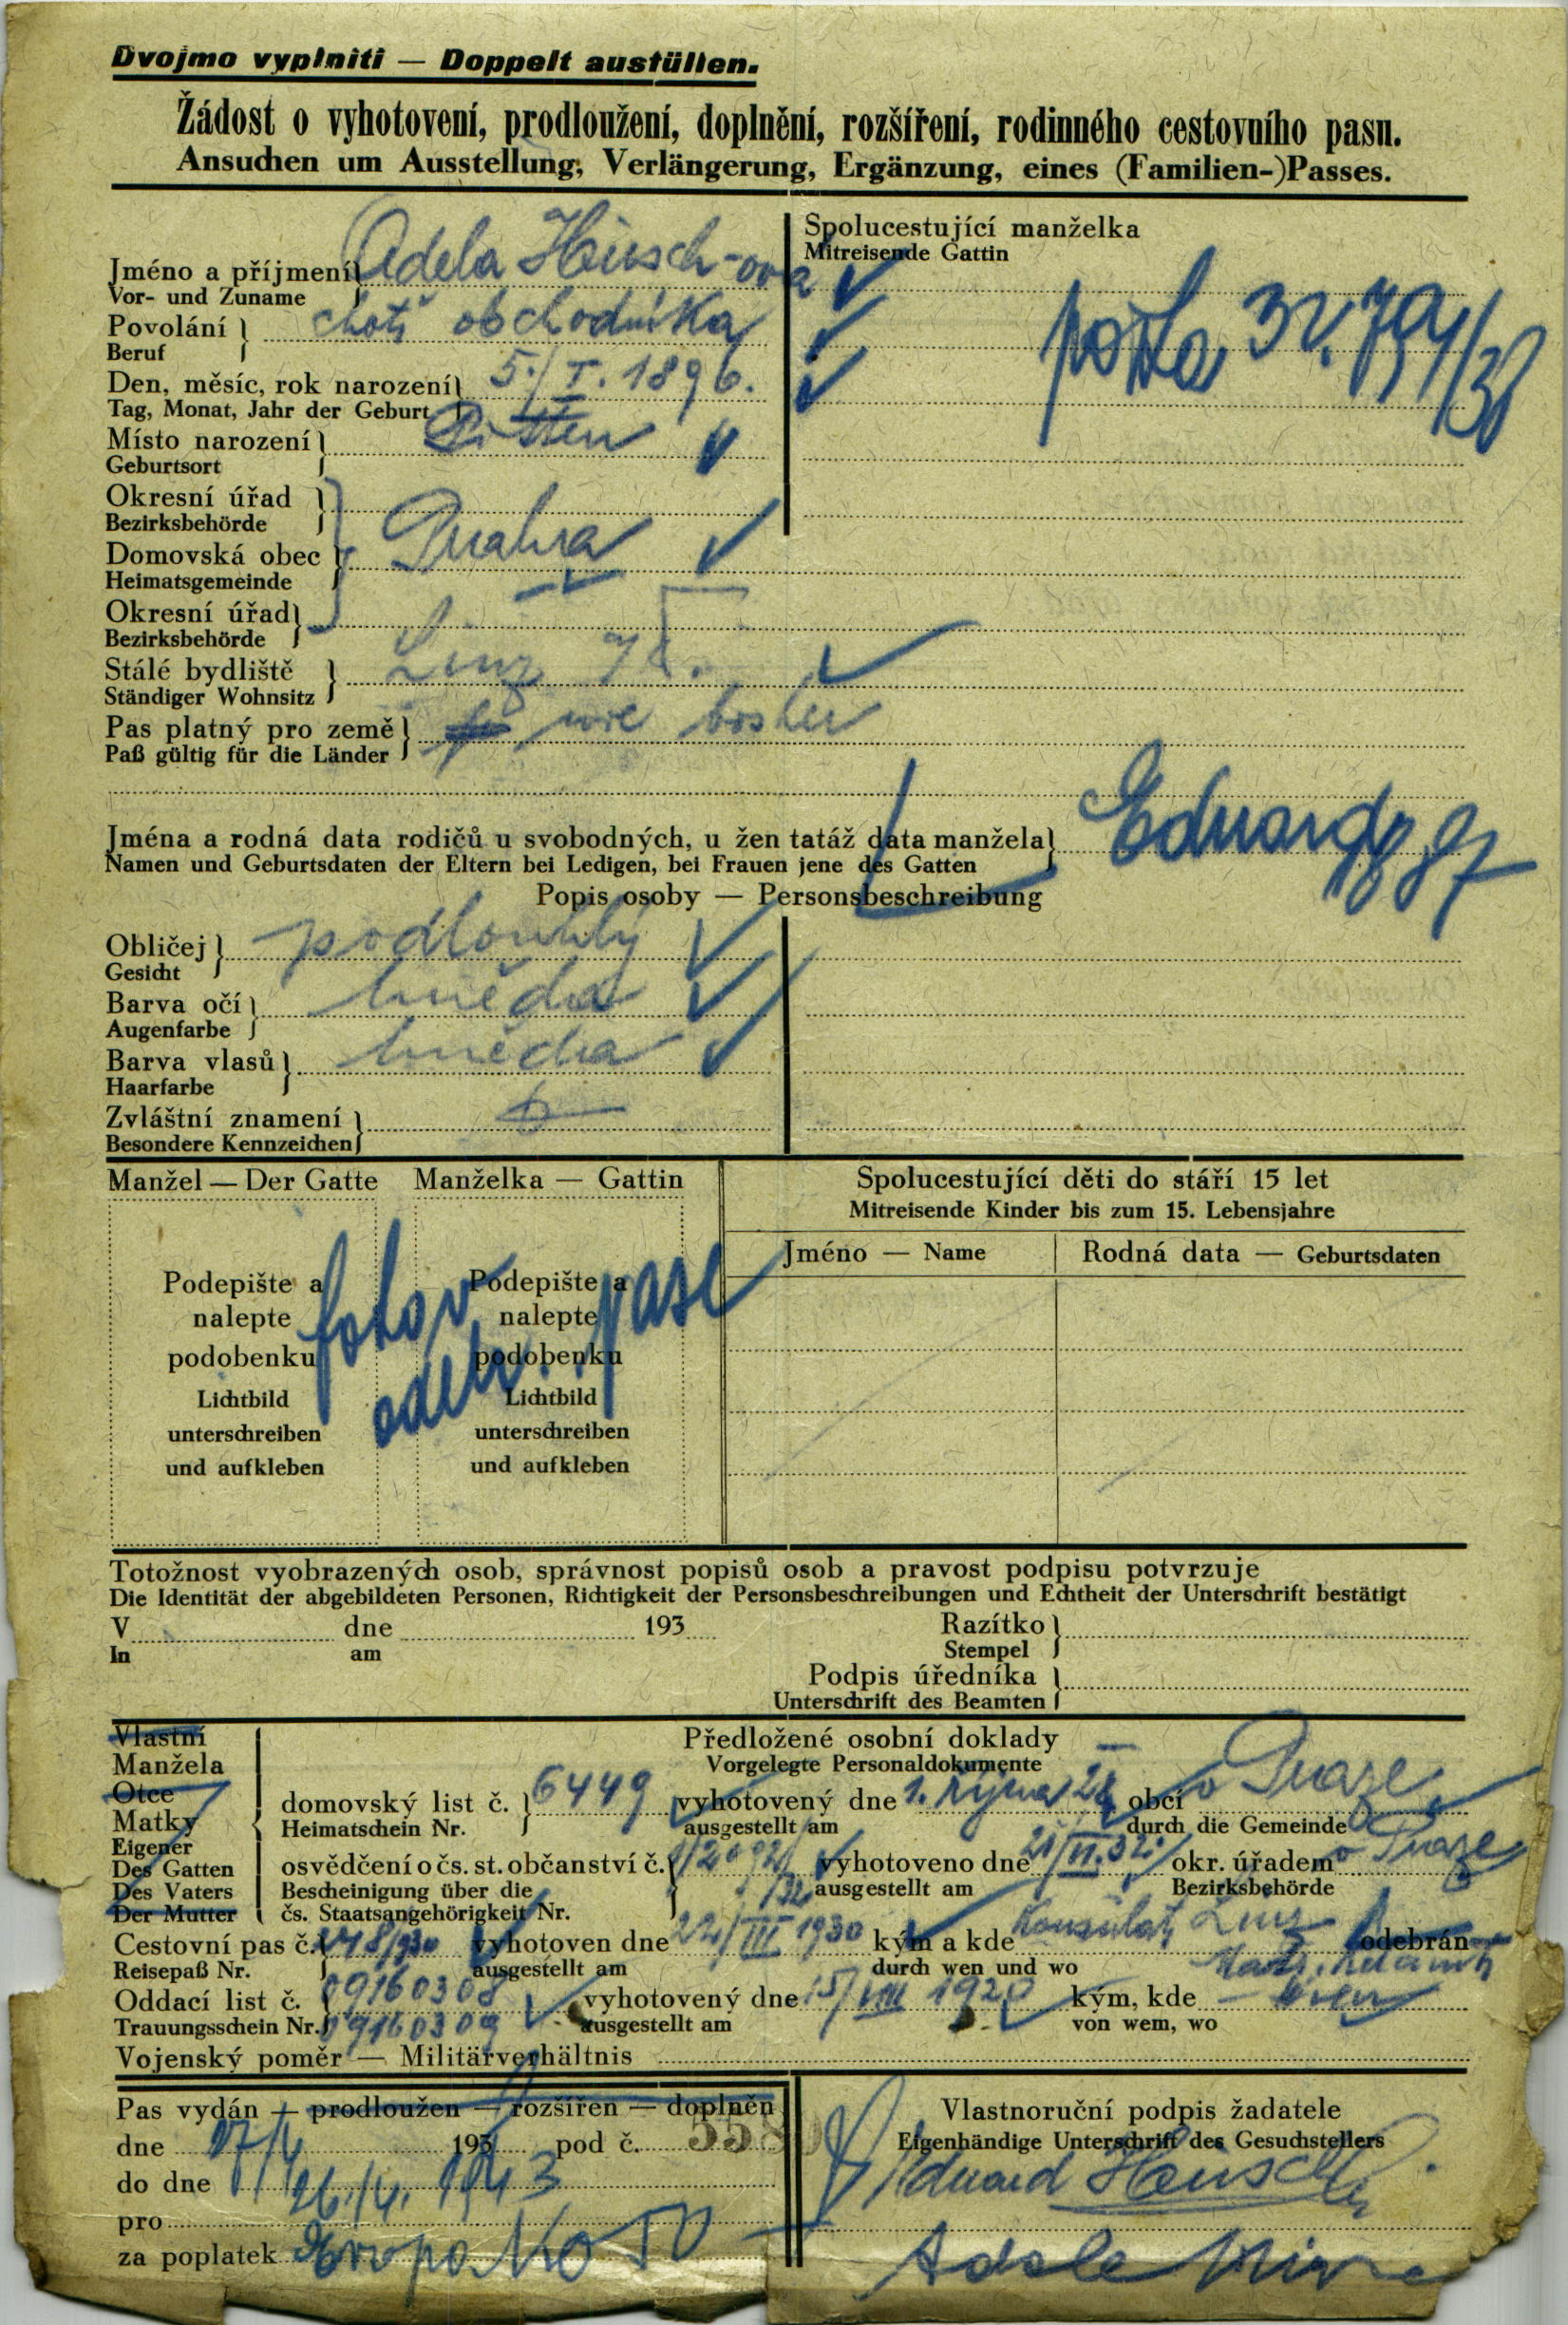 Dvojmo vyplniti — Doppelt ausfüllen.
Žádost o vyhotovení, prodloužení, doplnění, rozšíření, rodinného cestovního pasu.
Ansuchen um Ausstellung, Verlängerung, Ergänzung, eines (Familien-)Passes.
Spolucestující manželka
Mitreisende Gattin
Jméno a příjmení Adela Hirsch-ova
Vor- und Zuname
Povolání choť obchodníka
Beruf
Den, měsíc, rok narození 5./I. 1896.
Tag, Monat, Jahr der Geburt
Místo narození Pitten
Geburtsort
Okresní úřad
Bezirksbehörde
Domovská obec Praha
Heimatsgemeinde
Okresní úřad
Bezirksbehörde
Stálé bydliště Linz
Ständiger Wohnsitz
Pas platný pro země wie bisher
Paß gültig für die Länder
Jména a rodná data rodičů u svobodných, u žen tatáž data manžela Eduard
Namen und Geburtsdaten der Eltern bei Ledigen, bei Frauen jene des Gatten
Popis osoby — Personsbeschreibung
Obličej podlouhlý
Gesicht
Barva očí hnědá
Augenfarbe
Barva vlasů hnědá
Haarfarbe
Zvláštní znamení
Besondere Kennzeichen
Manžel — Der Gatte Manželka — Gattin
Spolucestující děti do stáří 15 let
Mitreisende Kinder bis zum 15. Lebensjahre
Jméno — Name Rodná data — Geburtsdaten
Podepište a nalepte podobenku
Lichtbild unterschreiben und aufkleben
Podepište a nalepte podobenku
Lichtbild unterschreiben und aufkleben
foto v pase
Totožnost vyobrazených osob, správnost popisů osob a pravost podpisu potvrzuje
Die Identität der abgebildeten Personen, Richtigkeit der Personsbeschreibungen und Echtheit der Unterschrift bestätigt
V dne 193
In am
Razítko
Stempel
Podpis úředníka
Unterschrift des Beamten
Vlastní
Manžela
Otce
Matky
Eigener
Des Gatten
Des Vaters
Der Mutter
Předložené osobní doklady
Vorgelegte Personaldokumente
domovský list č. 6449 vyhotovený dne 1. října 28 obcí v Praze
Heimatschein Nr. ausgestellt am durch die Gemeinde
osvědčení o čs. st. občanství č. vyhotoveno dne okr. úřadem v Praze
Bescheinigung über die ausgestellt am Bezirksbehörde
čs. Staatsangehörigkeit Nr.
Cestovní pas č. vyhotoven dne 22/III 1930 kým a kde Konsulat Linz odebrán
Reisepaß Nr. ausgestellt am durch wen und wo
Oddací list č. 09160308 vyhotovený dne kým, kde Wien
Trauungsschein Nr. 09160309 ausgestellt am von wem, wo
Vojenský poměr — Militärverhältnis
Pas vydán — prodloužen — rozšířen — doplněn
dne 193 pod č.
do dne 26./4. 1943
pro
za poplatek Evropa
Vlastnoruční podpis žadatele
Eigenhändige Unterschrift des Gesuchstellers
Eduard Hirsch
Adele